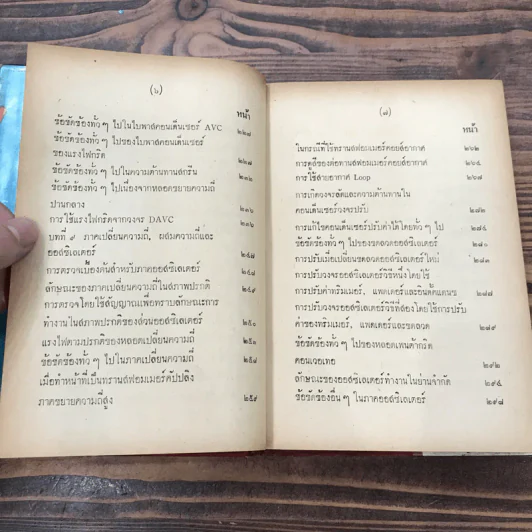 (๖)
หน้า
ข้อขัดข้องทั่ว ๆ ไปในใบพาสคอนเด็นเซอร์ AVC ๒๒๗
ข้อขัดข้องทั่ว ๆ ไปของใบพาสคอนเด็นเซอร์
ของแรงไฟกริด ๒๒๗
ข้อขัดข้องทั่ว ๆ ไปในความต้านทานสกรีน ๒๓๒
ข้อขัดข้องทั่ว ๆ ไปเนื่องจากหลอดขยายความถี่
ปานกลาง ๒๓๖
การใช้แรงไฟกริดจากวงจร DAVC ๒๓๖
บทที่ ๙ ภาคเปลี่ยนความถี่, ผสมความถี่และ
ออสซิเลเตอร์ ๒๔๗
การตรวจเบื้องต้นสำหรับภาคออสซิเลเตอร์ ๒๔๗
ลักษณะของภาคเปลี่ยนความถี่ในสภาพปรกติ ๒๔๙
การตรวจโดยใช้สัญญาณเพื่อทราบลักษณะการ
ทำงานในสภาพปรกติของส่วนออสซิเลเตอร์ ๒๕๐
แรงไฟตามปรกติของหลอดเปลี่ยนความถี่ ๒๕๑
ข้อขัดข้องทั่ว ๆ ไปในภาคเปลี่ยนความถี่ ๒๕๘
เมื่อทำหน้าที่เป็นทรานส์ฟอมเมอร์คัปปลิง
ภาคขยายความถี่สูง ๒๕๙
(๗)
หน้า
ในกรณีที่ใช้ทรานสฟอมเมอร์คอยส์อากาศ ๒๖๒
การดูสีของต่อทานสฟอมเมอร์คอยส์อากาศ ๒๖๔
การใช้สายอากาศ Loop ๒๖๗
การเกิดวงจรลัดและความต้านทานใน
คอนเด็นเซอร์วงจรปรับ ๒๗๒
การแก้ไขคอนเด็นเซอร์ปรับค่าได้โดยทั่ว ๆ ไป ๒๗๔
ข้อขัดข้องทั่ว ๆ ไปของขดลวดออสซิเลเตอร์
การปรับเมื่อเปลี่ยนขดลวดออสซิเลเตอร์ใหม่ ๒๗๓
การปรับวงจรออสซิเลเตอร์วิธีหนึ่งโดยใช้
การปรับค่าทริมเมอร์, แพดเดอร์และอินดั๊คแตนซ ๒๗๗
การปรับวงจรออสซิเลเตอร์วิธีที่สองโดยใช้การปรับ
ค่าของทริมเมอร์, แพดเดอร์และขดลวด ๒๗๙
ข้อขัดข้องทั่ว ๆ ไปของหลอดเพนต้ากริด
คอนเวอเทอ ๒๙๒
ลักษณะของออสซิเลเตอร์ทำงานในย่านจำกัด ๒๙๕
ข้อขัดข้องอื่น ๆ ในภาคออสซิเลเตอร์ ๒๙๗